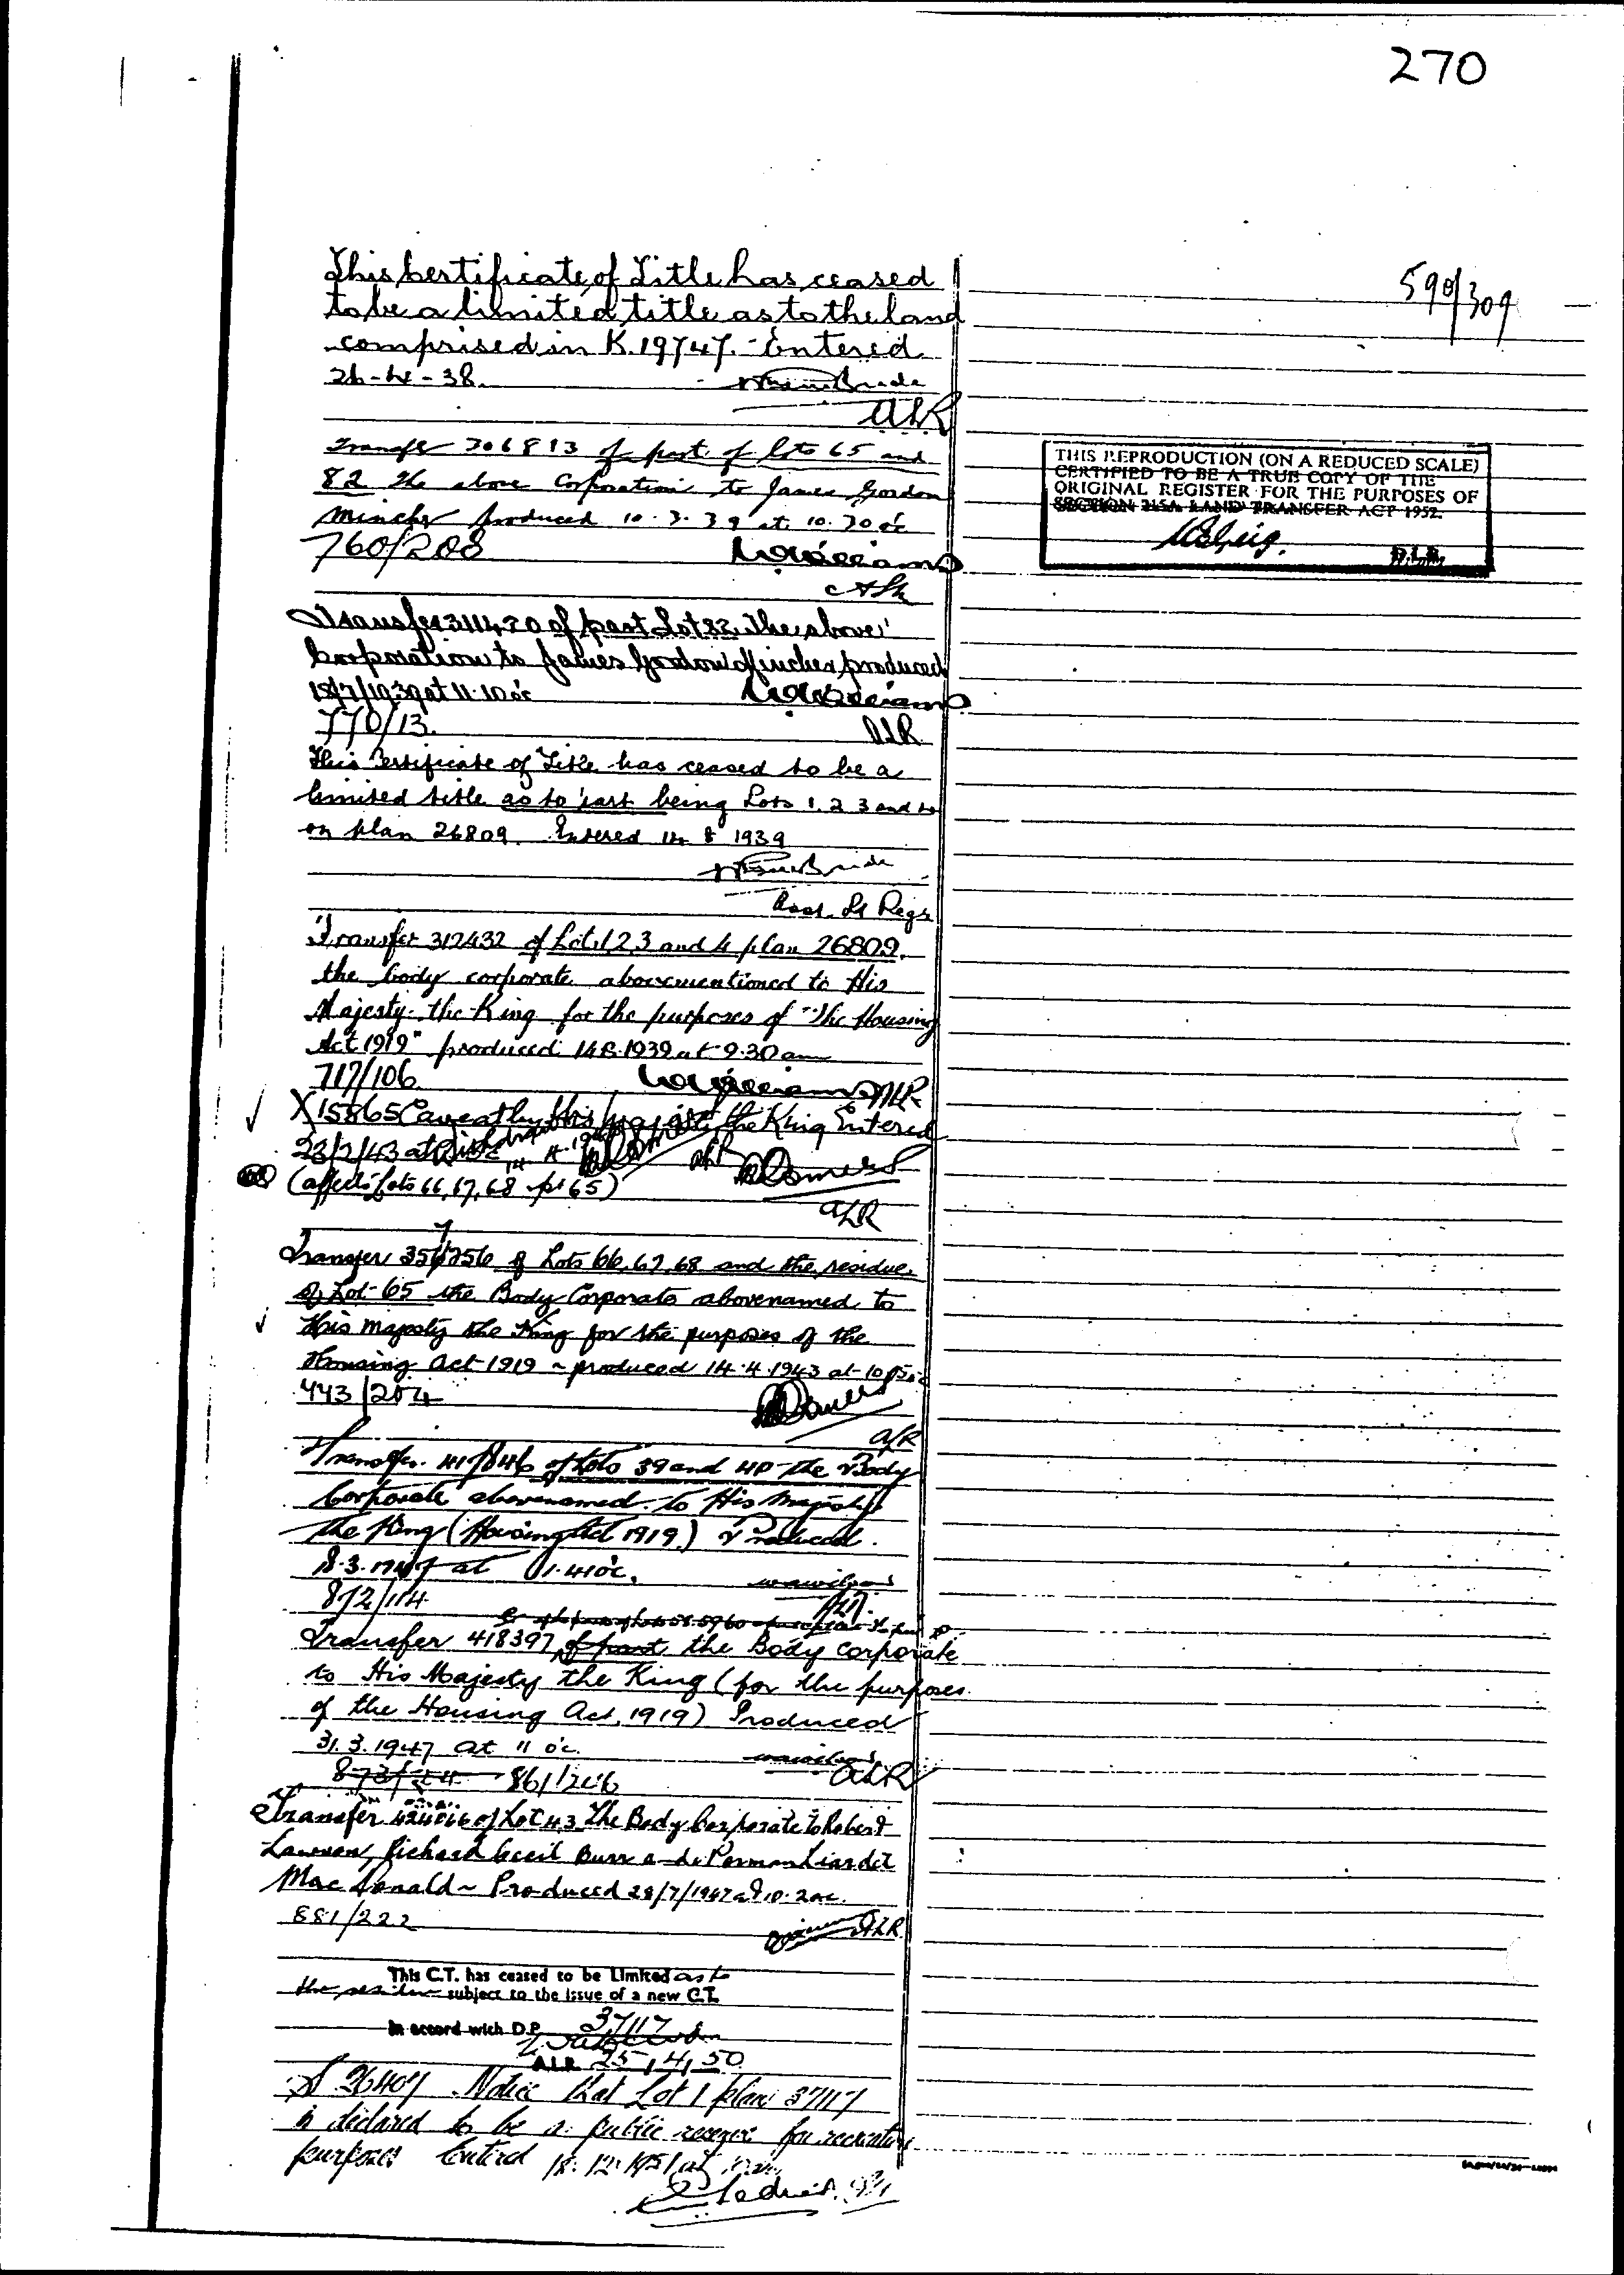 270
590/309
This Certificate of Title has ceased
to be a limited title as to the land
comprised in K. 19747. Entered
26-4-38.
ALR
Transfer 306813 of part of lots 65 and
82 the above Corporation to James Gordon
Mincher produced 10.3.39 at 10.30 oc
760/208
ALR
THIS REPRODUCTION (ON A REDUCED SCALE)
CERTIFIED TO BE A TRUE COPY OF THE
ORIGINAL REGISTER FOR THE PURPOSES OF
SECTION 215A LAND TRANSFER ACT 1952.
D.L.R.
Transfer 311420 of part Lot 82 The above
Corporation to James Gordon Mincher produced
18/7/1939 at 11.10 oc
770/13.
ALR
This Certificate of Title has ceased to be a
limited title as to part being Lots 1. 2 3 and 4
on plan 26809. Entered 14 8 1939
Asst. Ld Regr
Transfer 312432 of Lots 1,2,3 and 4 plan 26809.
the body corporate abovementioned to His
Majesty the King for the purposes of "The Housing
Act 1919" produced 14.8.1939 at 9.30 am
717/106
ALR
X15865 Caveat by His Majesty the King Entered
23/2/43 at
ALR
(affects Lots 66, 67, 68 pt 65)
ALR
Transfer 356756 of Lots 66, 67, 68 and the residue
of Lot 65 the Body Corporate abovenamed to
His Majesty the King for the purposes of the
Housing Act 1919 ~ produced 14.4.1943 at
443/204
ALR
Transfer 417846 of Lots 39 and 40 the Body
Corporate abovenamed to His Majesty
the King (Housing Act 1919) Produced.
18.3.1947 at 11.41 oc.
872/114
ALR
Transfer 418397 of part the Body Corporate
to His Majesty the King (for the purposes
of the Housing Act, 1919) Produced
31.3.1947 at 11 oc.
861/206
ALR
Transfer 424066 of Lot 43 The Body Corporate to Robert
Lawson, Richard Cecil Burr and Liardet
MacDonald ~ Produced 28/7/1947 at 10.2 oc.
881/222
ALR
This C.T. has ceased to be Limited as to
the residue subject to the issue of a new C.T.
in accord with D.P. 37117
A.L.R. 25/4/50
S 26407 Notice that Lot 1 plan 37117
is declared to be a public reserve for recreation
purposes Entered 18.12.1951 at